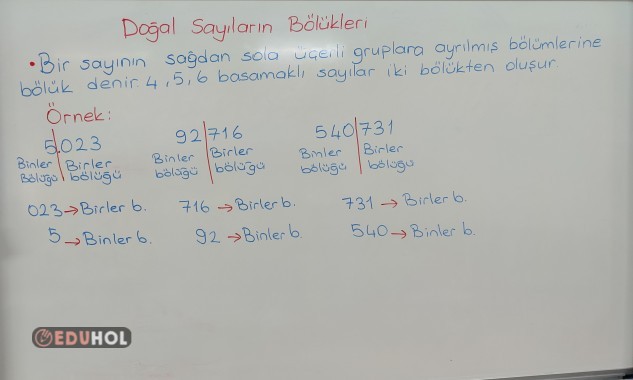 Doğal Sayıların Bölükleri
• Bir sayının sağdan sola üçerli gruplara ayrılmış bölümlerine
bölük denir 4, 5, 6 basamaklı sayılar iki bölükten oluşur
Örnek:
5.023 92|716 540|731
Binler Birler Binler Birler Binler Birler
Bölüğü bölüğü bölüğü bölüğü bölüğü bölüğü
023→Birler b. 716→Birler b. 731→Birler b.
5→Binler b. 92→Binler b. 540→Binler b.
EDUHOL